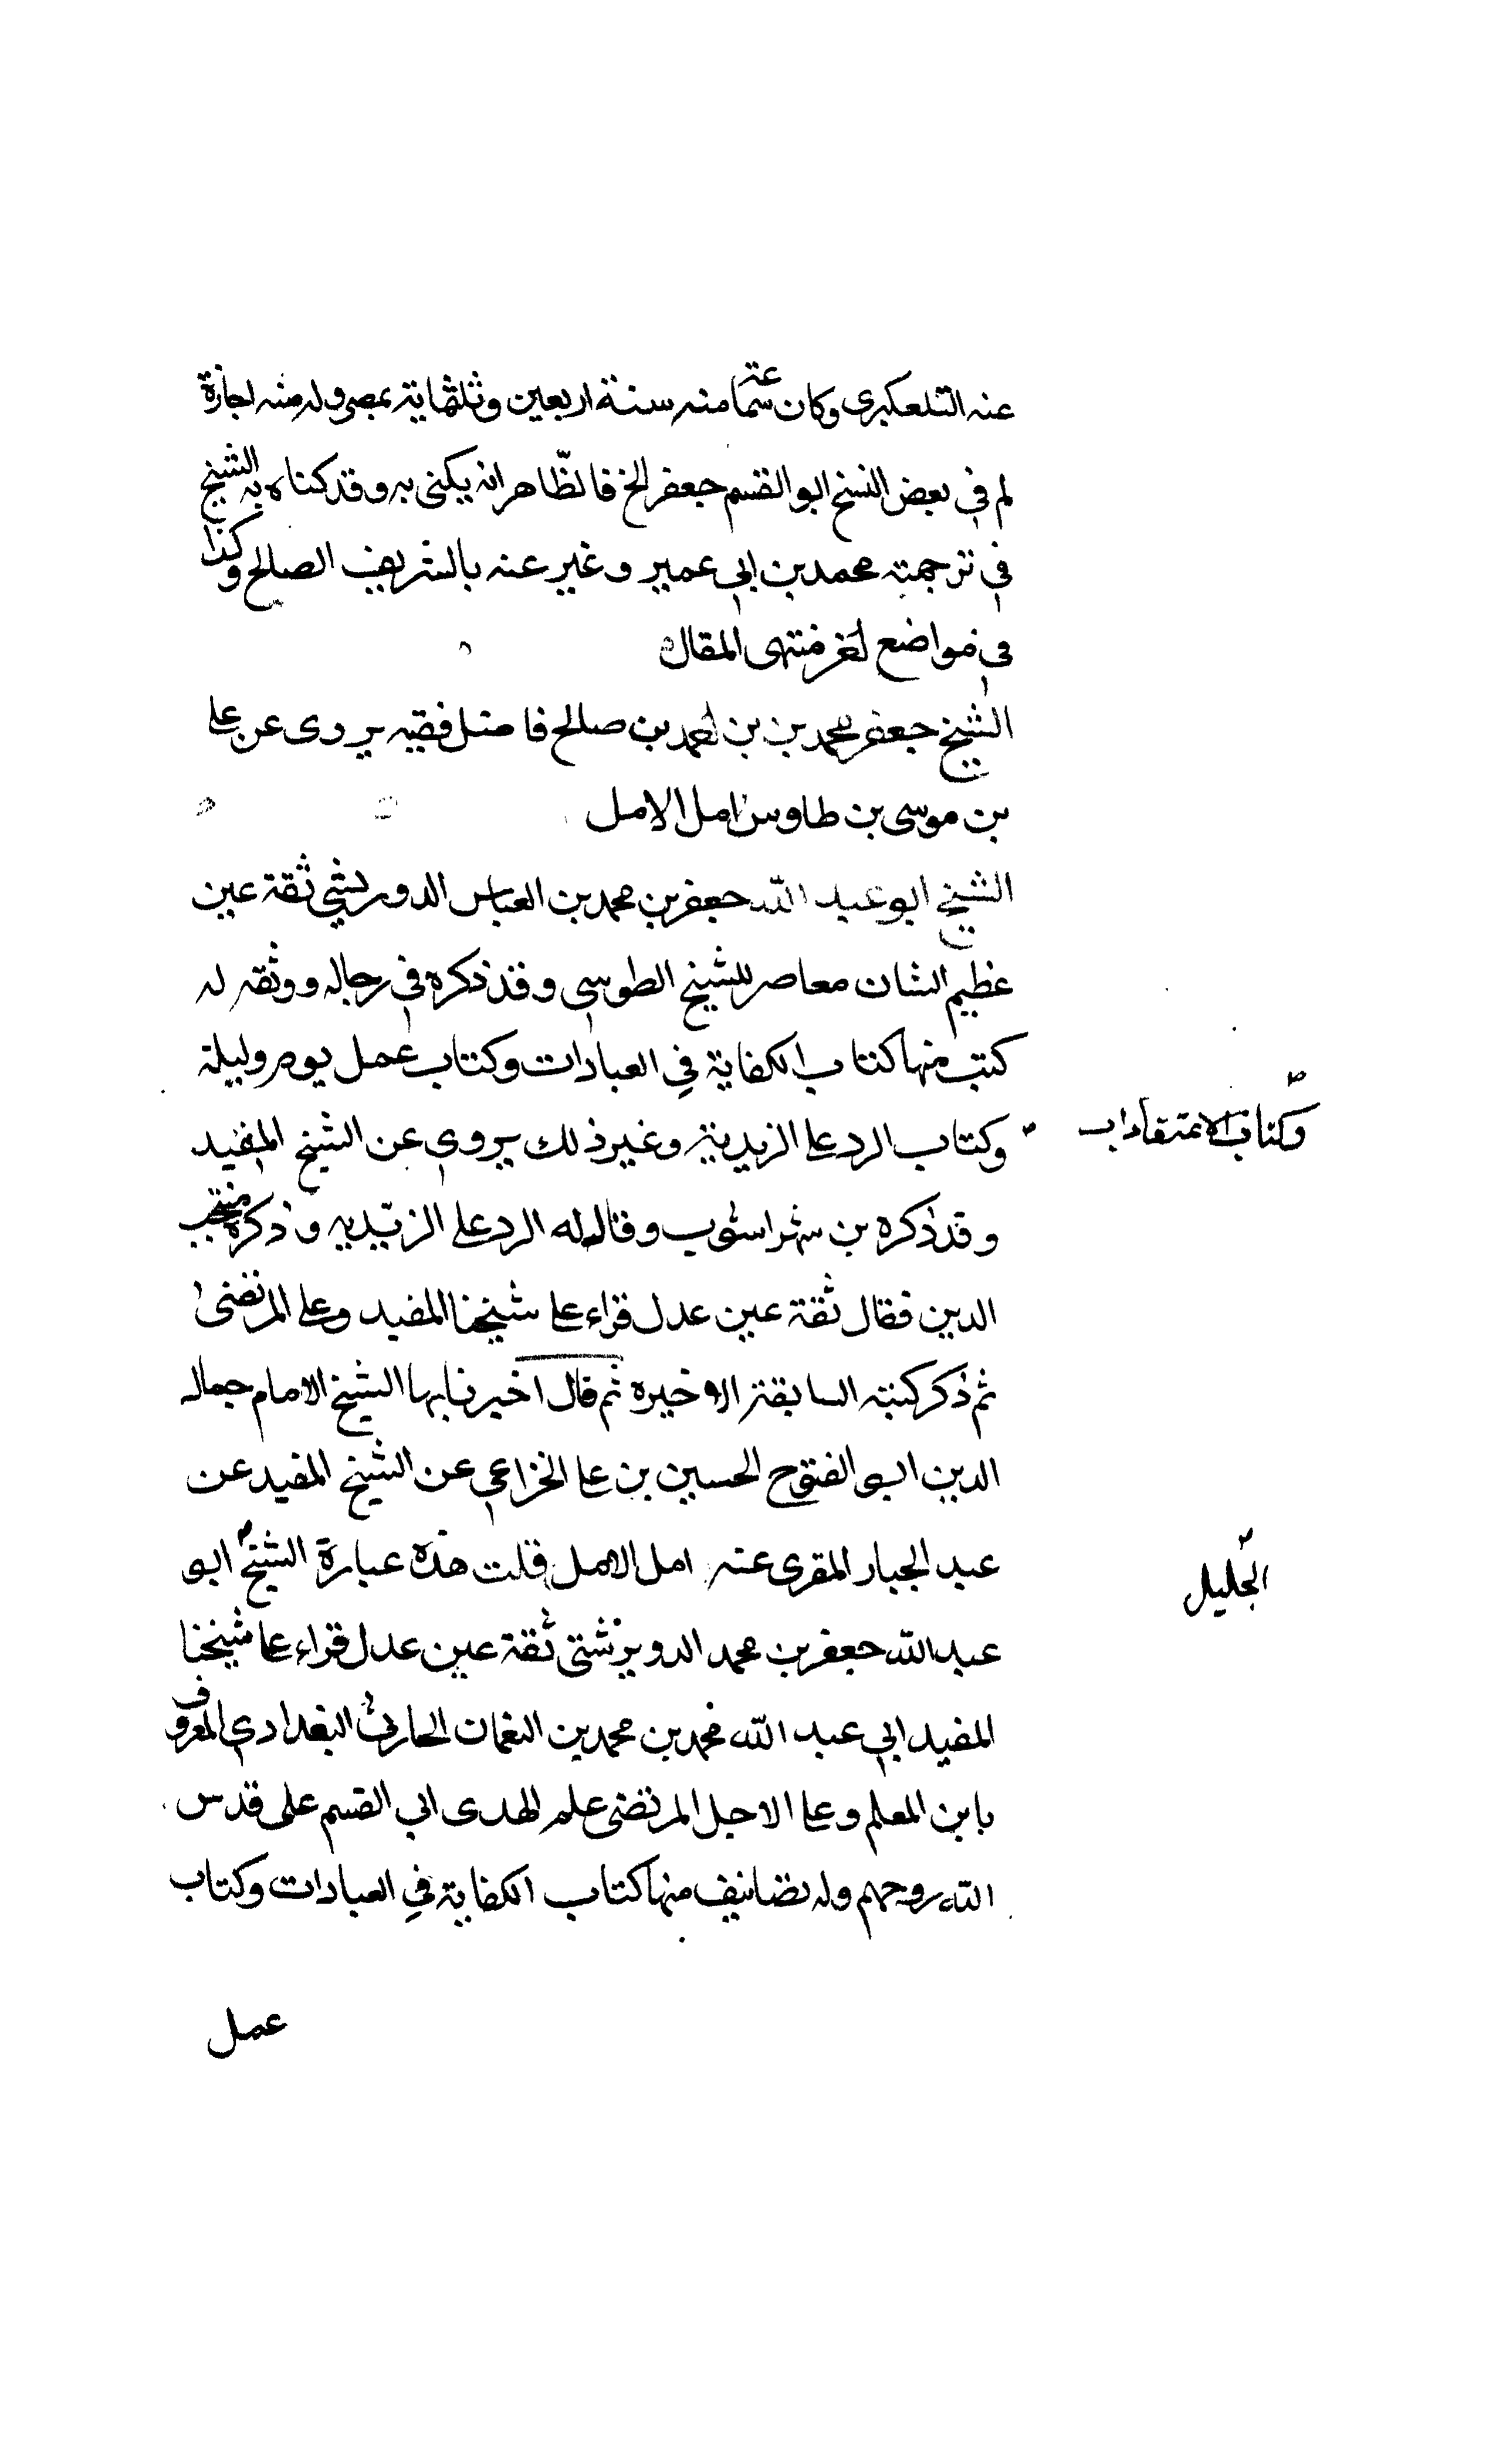 عنه التلعكبرى وكان سماعته منه سنة اربعين وثلثماية بمصر وله منه اجازة
لم فى بعض النسخ ابو القسم جعفر الخ فالظّاهر انه يكنى به وقد كناه به الشيخ
فى ترجمته محمد بن ابى عمير وغير عنه بالشريف الصالح وكذا
فى مواضع اخر منتهى المقال
الشيخ جعفر بن محمد بن احمد بن صالح فاضل فقيه يروى عن على
بن موسى بن طاوس امل الامل
الشيخ ابو عبد الله جعفر بن محمد بن العباس الدوريشي ثقة عين
عظيم الشان معاصر للشيخ الطوسى وقد ذكره فى رجاله ووثقه له
كتب منها كتاب الكفاية في العبادات وكتاب عمل يوم وليلة
وكتاب الاعتقادات
وكتاب الرد على الزيدية وغير ذلك يروى عن الشيخ المفيد
وقد ذكره بن شهراسوب وقال له الرد على الزيّديه وذكره منتجب
الدين فقال ثقة عين عدل قراء على شيخنا المفيد وعلى المرتضى
ثم ذكر كتبته السابقة الاخيره ثم قال اخبرنا بها الشيخ الامام جمال
الدين ابو الفتوح الحسين بن على الخزاعى عن الشيخ المفيد عن
عبد الجبار المقرى عنه امل الامل قلت هذه عبارة الشيخ ابو
الجليل
عبد الله جعفر بن محمد الدويرشتى ثقة عين عدل قراء على شيخنا
المفيد ابي عبد الله محمد بن محمد بن النعمان الحارثى البغدادى المعروف
بابن المعلم وعلى الاجل المرتضى علم الهدى ابى القسم على قدس
الله روحهم وله تصانيف منها كتاب الكفاية في العبادات وكتاب
عمل